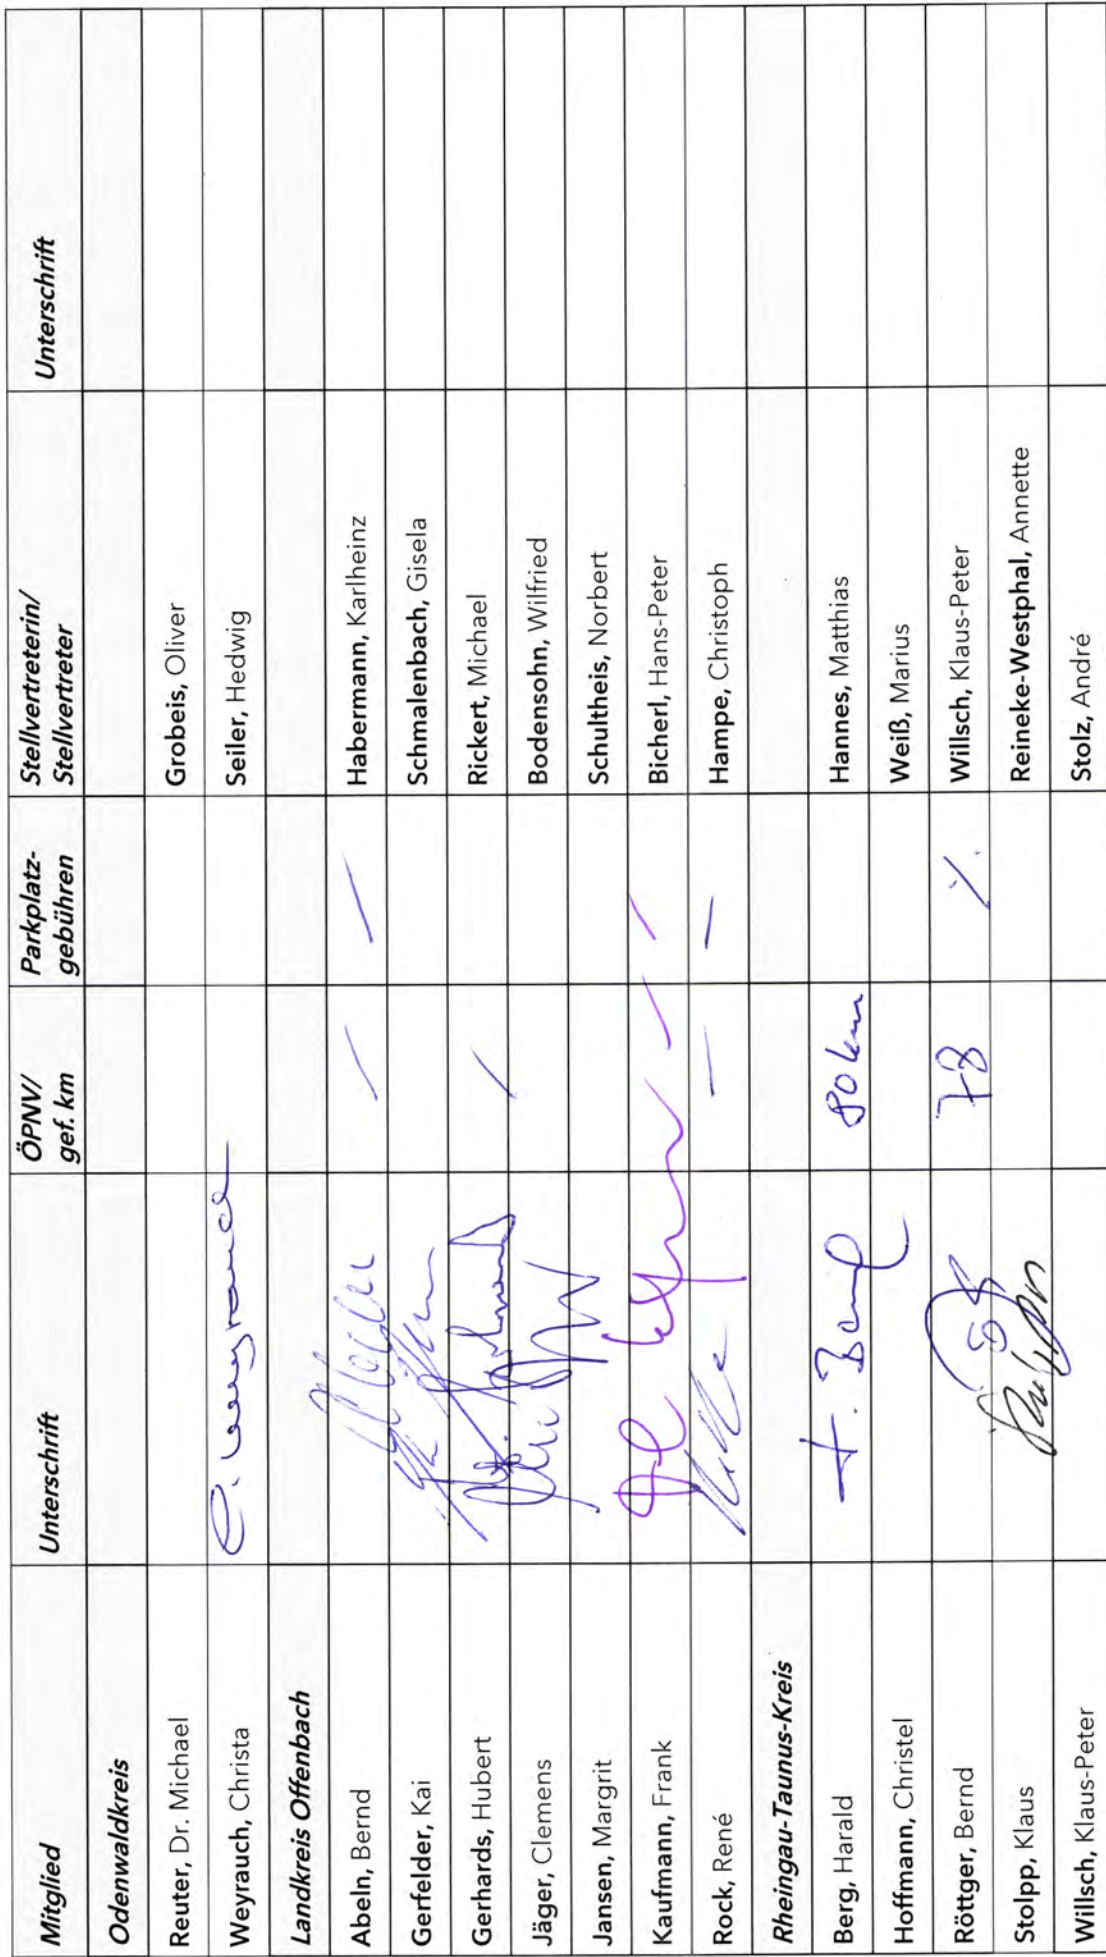 Mitglied Unterschrift ÖPNV/ gef. km Parkplatz- gebühren Stellvertreterin/ Stellvertreter Unterschrift
Odenwaldkreis
Reuter, Dr. Michael Grobeis, Oliver
Weyrauch, Christa C. Weyrauch Seiler, Hedwig
Landkreis Offenbach
Abeln, Bernd — — Habermann, Karlheinz
Gerfelder, Kai Schmalenbach, Gisela
Gerhards, Hubert — Rickert, Michael
Jäger, Clemens Bodensohn, Wilfried
Jansen, Margrit Schultheis, Norbert
Kaufmann, Frank — — Bicherl, Hans-Peter
Rock, René — — Hampe, Christoph
Rheingau-Taunus-Kreis
Berg, Harald H. Berg 80 km Hannes, Matthias
Hoffmann, Christel Weiß, Marius
Röttger, Bernd 78 ٪. Willsch, Klaus-Peter
Stolpp, Klaus Reineke-Westphal, Annette
Willsch, Klaus-Peter Stolz, André